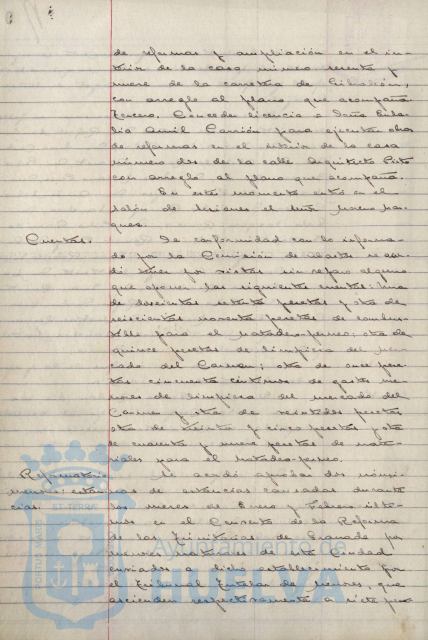 de reformas y ampliación en el in-
terior de la casa número sesenta y
nueve de la carretera de Gibraleón,
con arreglo al plano que acompaña.
Tercero. Conceder licencia a Doña Eula-
lia Carrión para ejecutar obras
de reformas en el interior de la casa
número dos de la calle Arquitecto Pinto
con arreglo al plano que acompaña.
En este momento entró en el
salón de sesiones el Señor Moreno Jar-
ques.
Cuentas. De conformidad con lo informa-
do por la Comisión de abastos se acor-
dó tener por vistas sin reparo alguno
que oponer las siguientes cuentas: una
de doscientas setenta pesetas y otra de
seiscientas noventa pesetas de combus-
tible para el matadero; otra de
quince pesetas de limpieza del mer-
cado del Carmen; otra de once pese-
tas cincuenta céntimos de gastos me-
nores de limpieza del mercado del
Carmen y otra de veintidós pesetas
otra de treinta y cinco pesetas y otra
de cuarenta y nueve pesetas de mate-
riales para el matadero.
Reformatorio Se acordó aprobar dos nómi-
menores: estan- nas de estancias causadas durante
cias. los meses de Enero y Febrero últi-
mos en el Convento de la Reforma
de los Terciarios de Granada por
menores naturales de esta ciudad
enviados a dicho establecimiento por
el Tribunal Tutelar de Menores, que
ascienden respectivamente a siete pese
Ayuntamiento de
HUELVA
PORTUS MARIS
ET TERRÆ